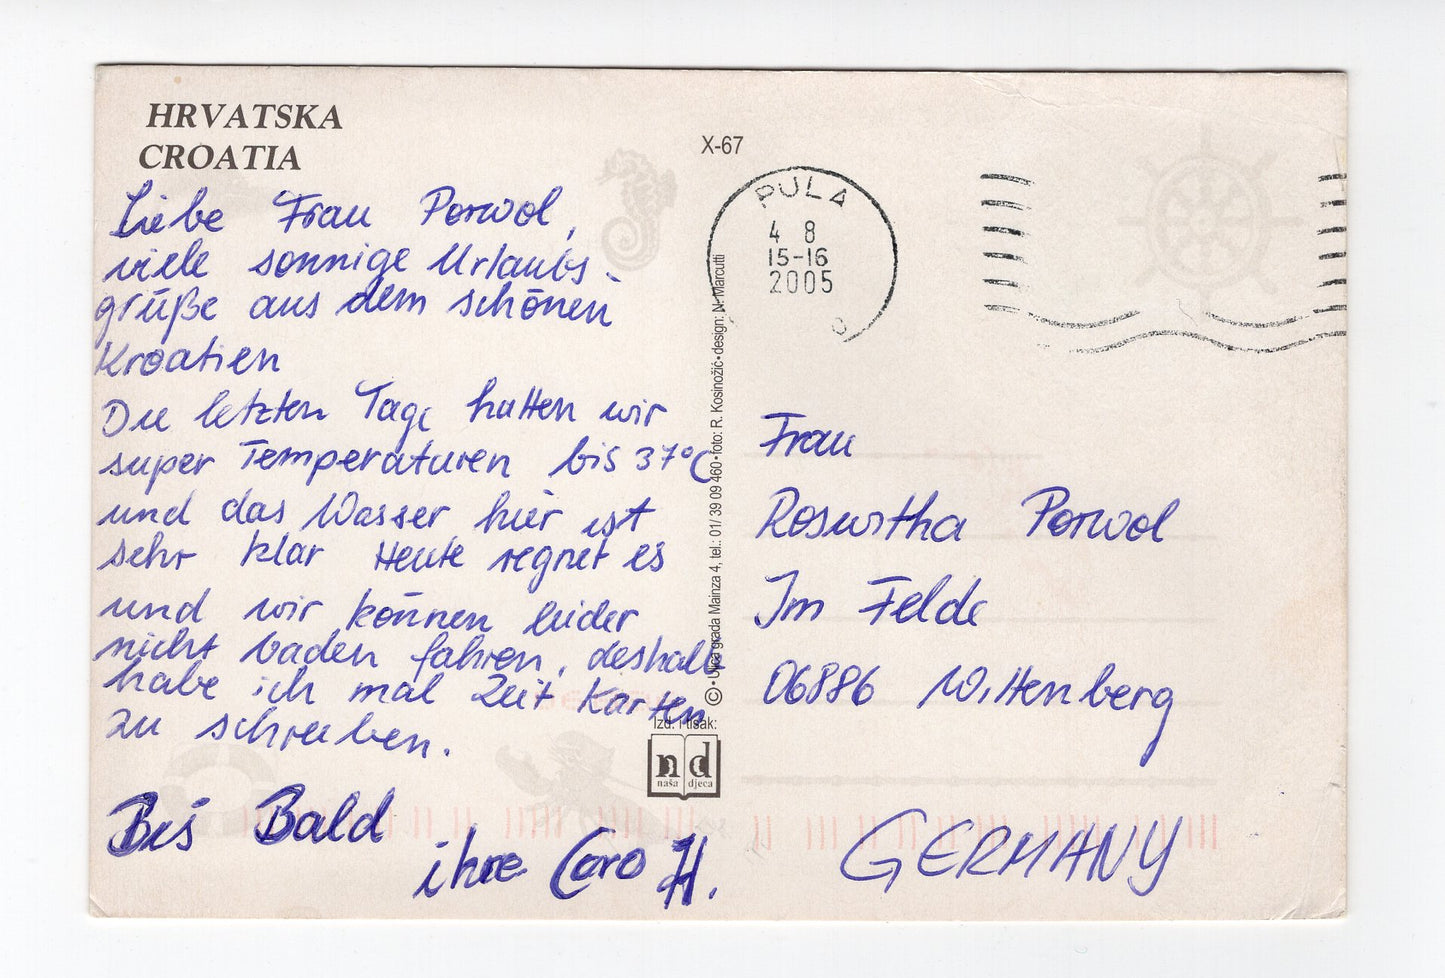 HRVATSKA
CROATIA
X-67
Liebe Frau Porwol,
viele sonnige Urlaubs-
grüße aus dem schönen
Kroatien
Die letzten Tage hatten wir
super Temperaturen bis 37°C
und das Wasser hier ist
sehr klar Heute regnet es
und wir können leider
nicht baden fahren, deshalb
habe ich mal Zeit Karten
zu schreiben.
Bis Bald
ihre Caro H.
© • Ulica grada Mainza 4, tel.: 01/ 39 09 460 • foto: R. Kosinožić • design: N. Marcutti
Izd. i tisak:
nd
naša djeca
PULA
4 8
15-16
2005
Frau
Roswitha Porwol
Im Felde
06886 Wittenberg
GERMANY